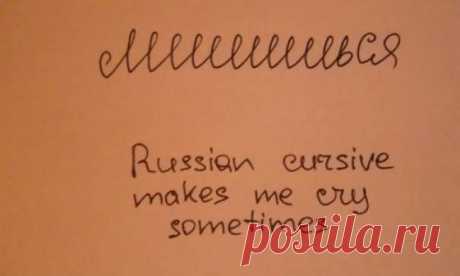 Лишишься
Russian cursive
makes me cry
sometimes
postila.ru